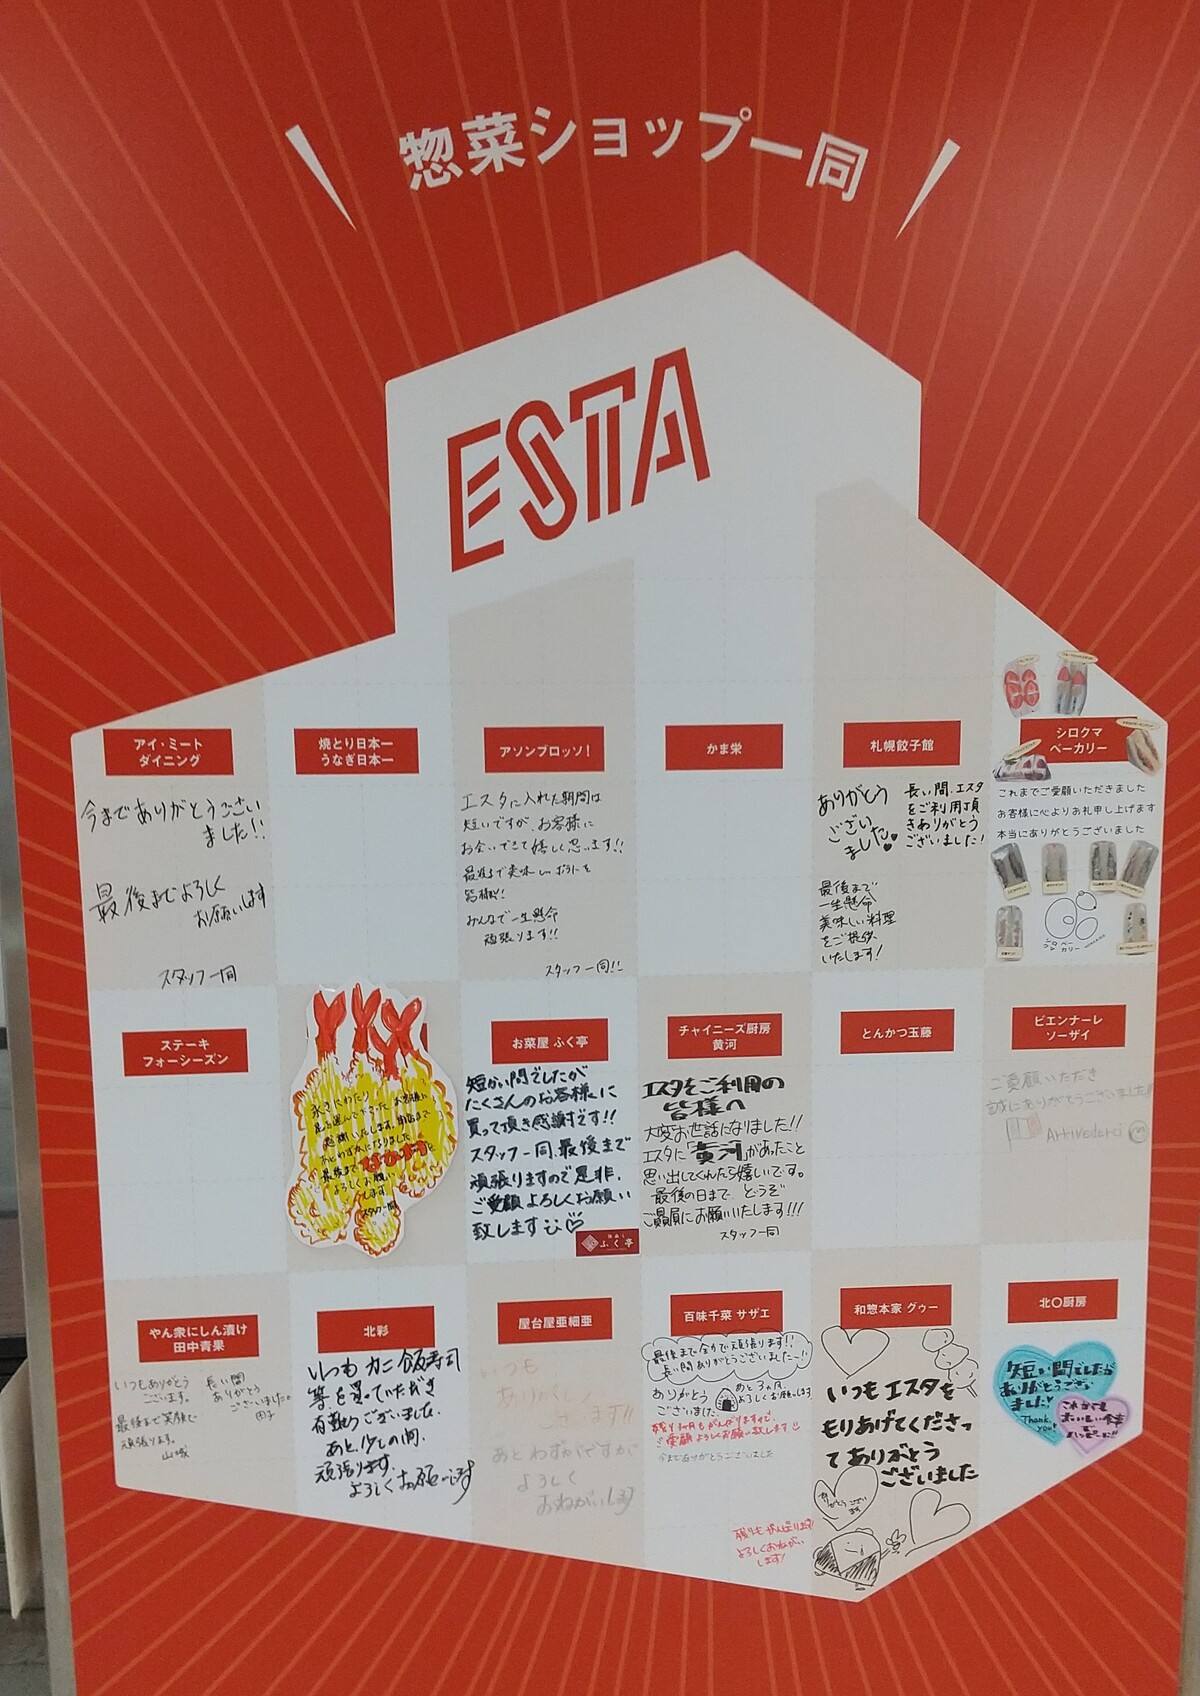 惣菜ショップ一同
ESTA
アイ・ミート
ダイニング
今までありがとうござい
ました!!
最後までよろしく
お願いします
スタッフ一同
焼とり日本一
うなぎ日本一
アソンブロッソ!
エスタに入れた期間は
短いですが、お客様に
お会いできて嬉しく思います!!
最後まで美味しいおうちを
皆様に!
みんなで一生懸命
頑張ります!!
スタッフ一同!!
かま栄
札幌餃子館
ありがとう
ござい
ました
長い間、エスタ
をご利用頂
きありがとう
ございました!
最後まで
一生懸命
美味しい料理
をご提供
いたします!
シロクマ
ベーカリー
これまでご愛顧いただきました
お客様に心よりお礼申し上げます
本当にありがとうございました
シロ ベー
クマ カリー
ステーキ
フォーシーズン
永きにわたり
お客様に
足を運んで下さった
感謝いたします。閉店まで
あとわずかになりました
最後まで
よろしくお願い
します
スタッフ一同
お菜屋 ふく亭
短かい間でしたが
たくさんのお客様に
買って頂き感謝です!!
スタッフ一同、最後まで
頑張りますので是非、
ご愛顧よろしくお願い
致します
ふく亭
チャイニーズ厨房
黄河
エスタをご利用の
皆様へ
大変お世話になりました!!
エスタに「黄河」があったこと
思い出してくれたら嬉しいです。
最後の日まで どうぞ
ご贔屓にお願いいたします!!!
スタッフ一同
とんかつ玉藤
ビエンナーレ
ソーザイ
ご愛顧いただき
誠にありがとうございました!!
Arrivederci
やん衆にしん漬け
田中青果
いつもありがとう
ございます。
最後まで笑顔で
頑張ります。
山城
長い間
ありがとう
ございました。
田子
北彩
いつも カニ飯寿司
等を買っていただき
有難うございました.
あと、少しの間、
頑張ります.
よろしくお願いします
屋台屋亜細亜
いつも
ありがとう
ございます!!
あとわずかですが
よろしく
おねがいします
百味千菜 サザエ
最後まで全力で頑張ります!!
長い間ありがとうございましたー!!
ありがとう
ございました
あと3ヵ月、
よろしくお願いします
残り1ヶ月もがんばりますので、
ご愛顧よろしくお願い致します
今までありがとうございました
残りもがんばります!
よろしくおねがい
します!
和惣本家 グゥー
いつもエスタを
もりあげてくださっ
てありがとう
ございました
ありが
とうござい
ます
北〇厨房
短い間でしたが
ありがとうござい
ました
Thank
you!
これからも
おいしい食事
を